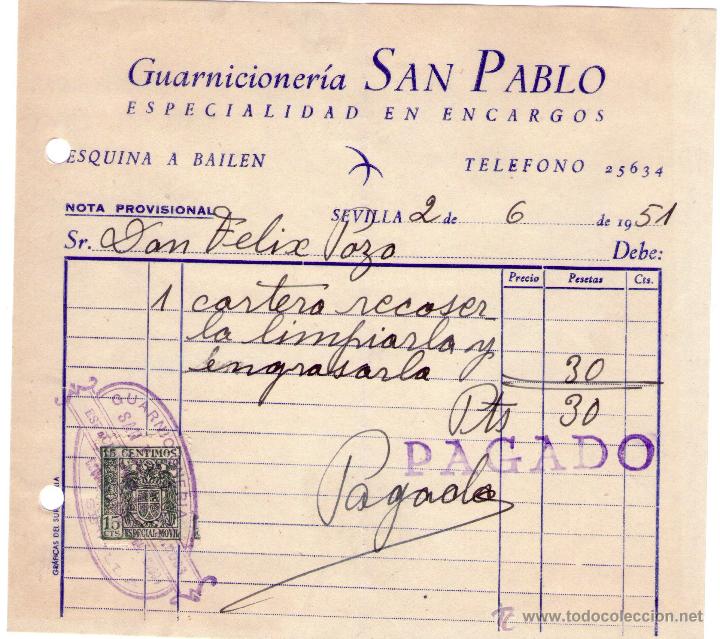 Guarnicionería SAN PABLO
ESPECIALIDAD EN ENCARGOS
ESQUINA A BAILEN
TELEFONO 25634
NOTA PROVISIONAL
SEVILLA 2 de 6 de 1951
Sr. Don Felix Pozo Debe:
Precio Pesetas Cts.
1 cartera recoser
la limpiarla y
engrasarla 30
Pts 30
PAGADO
Pagado
GUARNICIONERIA
SAN
15 CENTIMOS
15 CTS.
ESPECIAL MOVIL
GRÁFICAS DEL SUR
www.todocoleccion.net